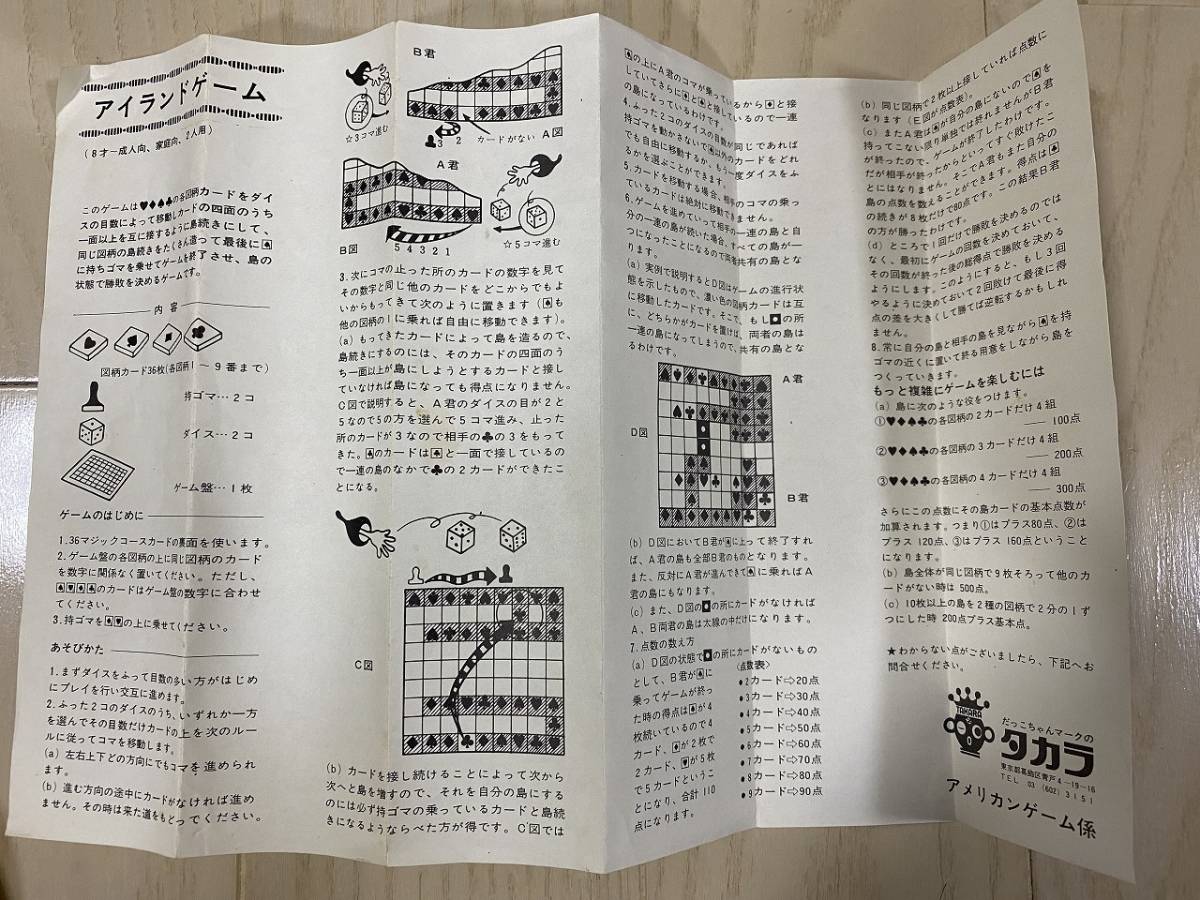 アイランドゲーム
(8才―成人向、家庭向、2人用)
このゲームは♥♦♠♣の各図柄カードをダイ
スの目数によって移動しカードの四面のうち
一面以上を互に接するように島続きにして、
同じ図柄の島続きをたくさん造って最後に♠
に持ちゴマを乗せてゲームを終了させ、島の
状態で勝敗を決めるゲームです。
内容
図柄カード36枚(各図柄1〜9番まで)
持ゴマ…2コ
ダイス…2コ
ゲーム盤…1枚
ゲームのはじめに
1.36マジックコースカードの裏面を使います。
2.ゲーム盤の各図柄の上に同じ図柄のカード
を数字に関係なく置いてください。ただし、
のカードはゲーム盤の数字に合わせ
てください。
3.持ゴマを♠♥の上に乗せてください。
あそびかた
1.まずダイスをふって目数の多い方がはじめ
にプレイを行い交互に進めます。
2.ふった2コのダイスのうち、いずれか一方
を選んでその目数だけカードの上を次のルー
ルに従ってコマを移動します。
(a)左右上下どの方向にでもコマを進められ
ます。
(b)進む方向の途中にカードがなければ進め
ません。その時は来た道をもどってください。
B君
☆3コマ進む
3 2
カードがない
A図
A君
B図
5 4 3 2 1
☆5コマ進む
3.次にコマの止った所のカードの数字を見て
その数字と同じ他のカードをどこからでもよ
いからもってきて次のように置きます(♠も
他の図柄の1に乗れば自由に移動できます)。
(a)もってきたカードによって島を造るので、
島続きにするのには、そのカードの四面のう
ち一面以上が島にしようとするカードと接し
ていなければ島になっても得点になりません。
C図で説明すると、A君のダイスの目が2と
5なので5の方を選んで5コマ進み、止った
所のカードが3なので相手の♣の3をもって
きた。♠のカードは♠と一面で接しているの
で一連の島のなかで♣の2カードができたこ
とになる。
C図
(b)カードを接し続けることによって次から
次へと島を増すので、それを自分の島にする
のには必ず持ゴマの乗っているカードと島続
きになるようならべた方が得です。C図では
♠の上にA君のコマが乗ってい
していてさらに♠と♠と接して
の島になっているわけです。
4.ふった2コのダイスの目数が
持ゴマを動かさないで♠以外の
でも自由に移動するか、もう一
るかを選ぶことができます。
5.カードを移動する場合、相手
ているカードは絶対に移動でき
6.ゲームを進めていって相手の
分の一連の島が続いた場合、す
つになったことになるので両者
ります。
(a)実例で説明するとD図はゲ
態を示したもので、濃い色の図
に移動したカードです。そこで、
に、どちらかがカードを置けば
一連の島になってしまうので、
るわけです。
るから♠と接
いるので一連
同じであれば
カードをどれ
度ダイスをふ
のコマの乗っ
ません。
一連の島と自
すべての島が一
共有の島とな
ームの進行状
柄カードは互
もし■の所
両者の島は
共有の島とな
A君
D図
B君
(b) D図においてB君が♠に上って終了すれ
ば、A君の島も全部B君のものとなります。
また、反対にA君が進んできて♠に乗ればA
君の島にもなります。
(c)また、D図の■の所にカードがなければ
A、B両君の島は太線の中だけになります。
7.点数の数え方
(a) D図の状態で■の所にカードがないもの
として、B君が♠に
乗ってゲームが終っ
た時の得点は♠が4
枚続いているので4
カード、♦が2枚で
2カード、♥が5枚
で5カードというこ
とになり、合計110
点になります。
(点数表)
●2カード⇨20点
●3カード⇨30点
●4カード⇨40点
●5カード⇨50点
●6カード⇨60点
●7カード⇨70点
●8カード⇨80点
●9カード⇨90点
(b)同じ図柄で2枚以上接していれば点数に
なります(E図が点数表)。
(c)またA君は♠が自分の島にないので♠を
持ってこない限り単独では終れませんがB君
が終ったので、ゲームが終了したわけです。
だが相手が終ったからといってすぐ敗けたこ
とにはなりません。そこでA君もまた自分の
島の点数を数えることができます。得点は♠
の続きが8枚だけで80点です。この結果B君
の方が勝ったわけです。
(d)ところで1回だけで勝敗を決めるのでは
なく、最初にゲームの回数を決めておいて、
その回数が終った後の総得点で勝敗を決める
ようにします。このようにすると、もし3回
やるように決めておいて2回敗けて最後に得
点の差を大きくして勝てば逆転するかもしれ
ません。
8.常に自分の島と相手の島を見ながら♠を持
ゴマの近くに置いて終る用意をしながら島を
つくっていきます。
もっと複雑にゲームを楽しむには
(a)島に次のような役をつけます。
①♥♦♠♣の各図柄の2カードだけ4組
――100点
②♥♦♠♣の各図柄の3カードだけ4組
――200点
③♥♦♠♣の各図柄の4カードだけ4組
――300点
さらにこの点数にその島カードの基本点数が
加算されます。つまり①はプラス80点、②は
プラス120点、③はプラス160点ということ
になります。
(b)島全体が同じ図柄で9枚そろって他のカ
ードがない時は500点。
(c)10枚以上の島を2種の図柄で2分の1ず
つにした時200点プラス基本点。
★わからない点がございましたら、下記へお
問合せください。
TAKARA
だっこちゃんマークの
タカラ
東京都葛飾区青戸4―19―16
TEL 03 (602) 3151
アメリカンゲーム係